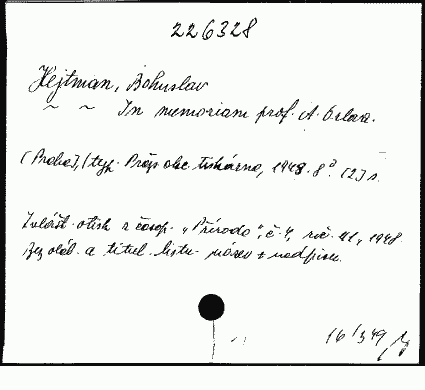 226328
Hejtman, Bohuslav
~ ~ In memoriam prof. A. Orlov.
(Praha), (typ. Praž. obc. tiskárna, 1948. 8°. [2] s.
Zvlášt. otisk z časop. „Příroda", č. 4, roč. 41, 1948.
Bez obáb. a titul. listu - název z nadpisu.
16/3 49